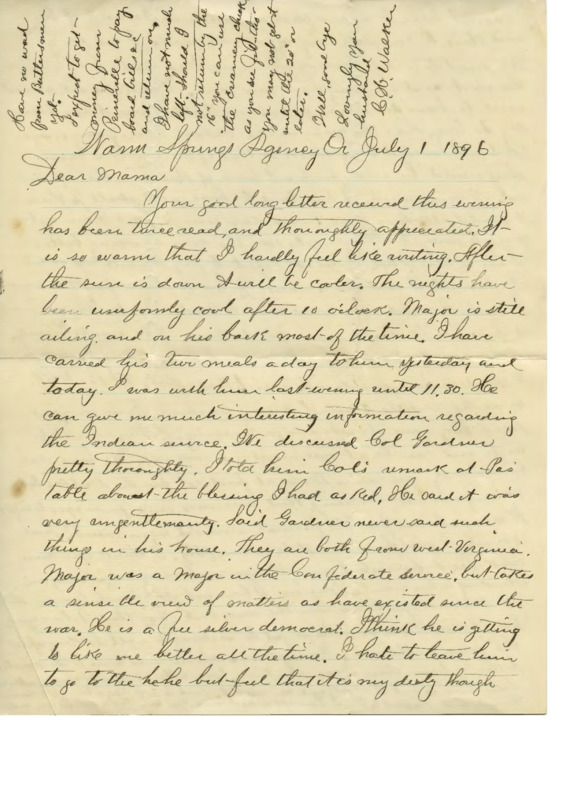 Warm Springs Agency Or July 1 1896
Dear Mama
Your good long letter received this evening
has been twice read, and thoroughly appreciated. It
is so warm that I hardly feel like writing. After
the sun is down it will be cooler. The nights have
been uniformly cool after 10 o'clock. Major is still
ailing and on his back most of the time. I have
carried his two meals a day to him yesterday and
today. I was with him last evening until 11.30. He
can give me much interesting information regarding
the Indian service. We discussed Col Gardner
pretty thoroughly. I told him Col's remark at Pa's
table about the blessing I had asked. He said it was
very ungentlemanly. Said Gardner never said such
things in his house. They are both from West Virginia.
Major was a Major in the Confederate service, but takes
a sensible view of matters as have existed since the
war. He is a free silver democrat. I think he is getting
to like me better all the time. I hate to leave him
to go to the but feel that it is my duty though
Have no word
from Butterman
yet.
I expect to get
money from
Prineville to pay
board bill &c
and return on.
I have not much
left. Should I
not return by the
15" you can use
the creamery check
as you see fit tho
you may not get it
until the 20" or
later.
Well, good bye
Lovingly your
husband
C. H. Walker